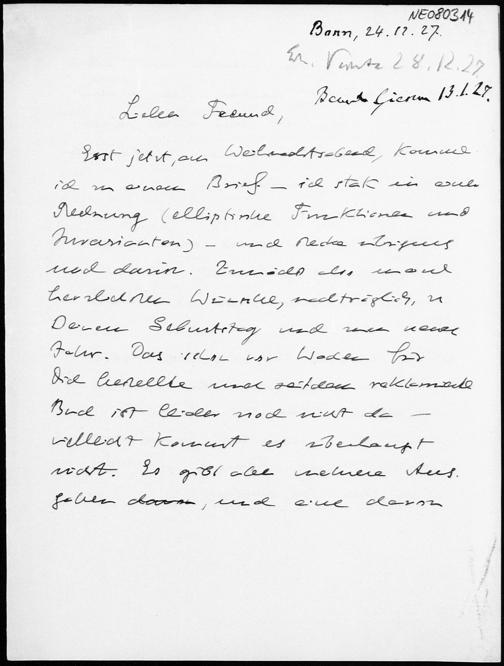 NE080314
Bonn, 24.12.27.
28.12.27
13.1.27.
Lieber Freund,
Erst jetzt, am Weihnachtsabend, komme
ich zu einem Brief – ich stak in einer
Rechnung (elliptische Funktionen und
Invarianten) – und stecke übrigens
noch darin. Zunächst also meine
herzlichsten Wünsche, nachträglich, zu
Deinem Geburtstag und zum neuen
Jahr. Das schon vor Wochen für
Dich bestellte und seitdem reklamierte
Buch ist leider noch nicht da –
vielleicht kommt es überhaupt
nicht. Es gibt aber mehrere Aus-
gaben davon, und eine davon